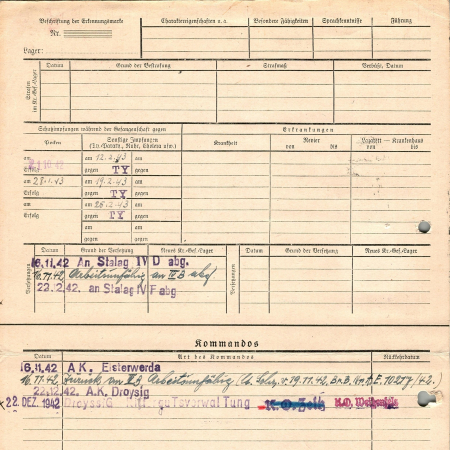 Beschriftung der Erkennungsmarke
Nr.
Lager:
Charaktereigenschaften u. a.
Besondere Fähigkeiten
Sprachkenntnisse
Führung
Strafen im Kr.-Gef.-Lager
Datum
Grund der Bestrafung
Strafmaß
Verbüßt, Datum
Schutzimpfungen während der Gefangenschaft gegen
Erkrankungen
Pocken
Sonstige Impfungen
(Ty. Paratyph., Ruhr, Cholera usw.)
Krankheit
Revier
von bis
Lazarett — Krankenhaus
von bis
am am 12.2.43 am
Erfolg gegen TY gegen
am 28.1.43 am 19.2.43 am
Erfolg gegen TY gegen
am am 26.2.43 am
Erfolg gegen TY gegen
Versetzungen
Datum
Grund der Versetzung
Neues Kr.-Gef.-Lager
Datum
Grund der Versetzung
Neues Kr.-Gef.-Lager
16.11.42 An Stalag IV D abg.
16.11.42 Arbeitsunfähig an IV B abg
22.12.42. an Stalag IV F abg
Kommandos
Datum
Art des Kommandos
Rückkehrdatum
16.11.42 A.K. Elsterwerda
16.11.42 Zurück von IV B, Arbeitsunfähig
22.12.42. A.K. Droysig
22. DEZ. 1942 Droyssig Gutsverwaltung K.O. Zeitz K.O. Weißenfels